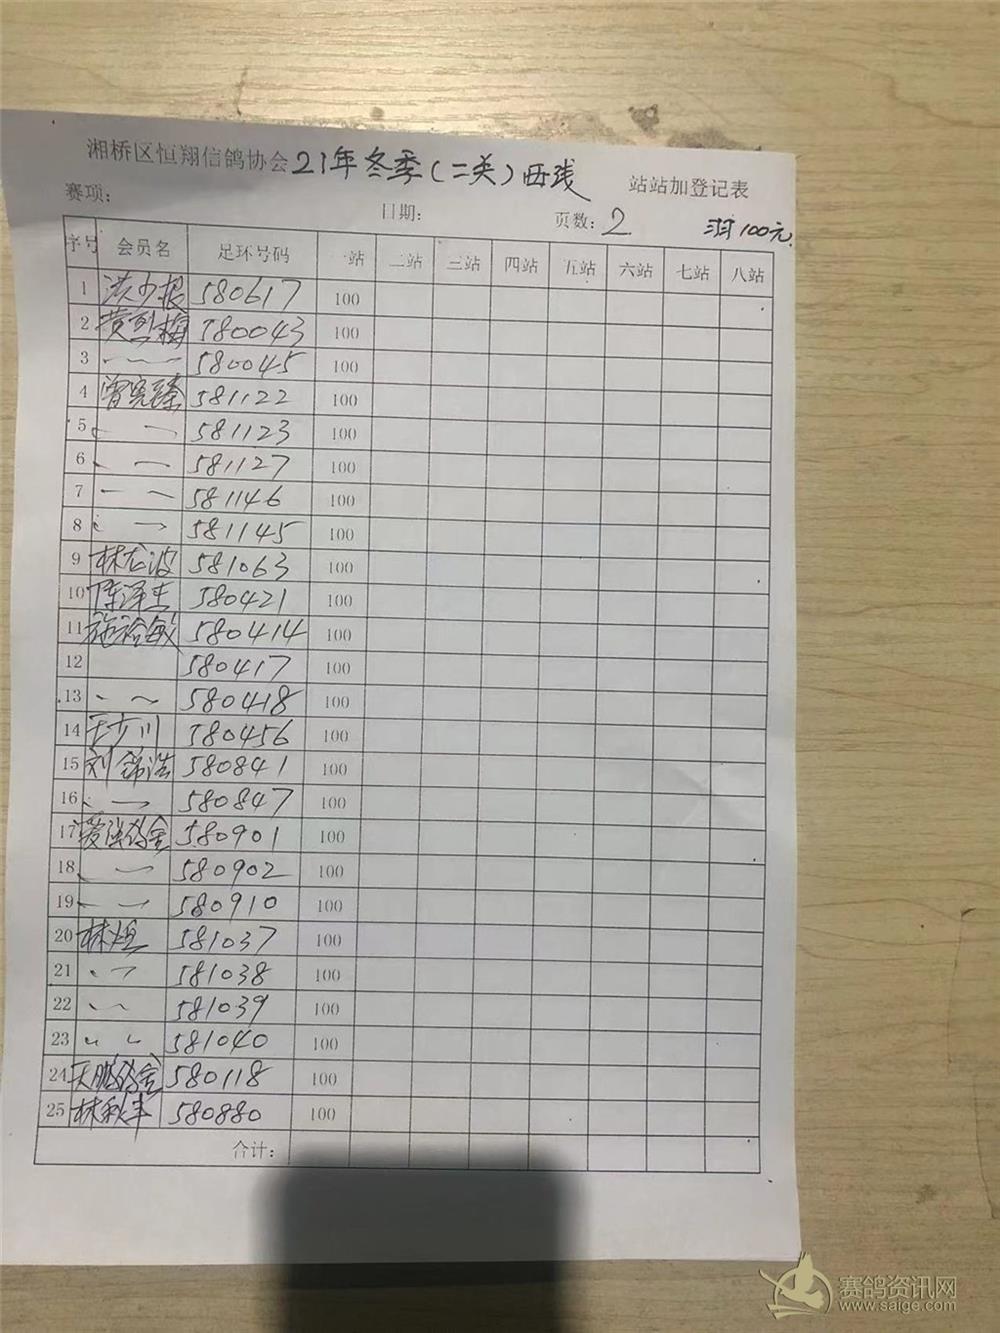 湘桥区恒翔信鸽协会 21年冬季(二关)西线 站站加登记表
赛项: 日期: 页数: 2 100元
序号 会员名 足环号码 一站 二站 三站 四站 五站 六站 七站 八站
1 洪少根 580617 100
2 黄烈梅 580043 100
3 580045 100
4 曾 580 581122 100
5 581123 100
6 581127 100
7 581146 100
8 581145 100
9 林龙波 581063 100
10 陈泽生 580421 100
11 施裕敏 580414 100
12 580417 100
13 580418 100
14 王少川 580456 100
15 刘锦浩 580841 100
16 580847 100
17 鸽舍 580901 100
18 580902 100
19 580910 100
20 林烜 581037 100
21 581038 100
22 581039 100
23 581040 100
24 天鹏鸽舍 580118 100
25 林秋丰 580880 100
合计:
赛鸽资讯网
www.saige.com